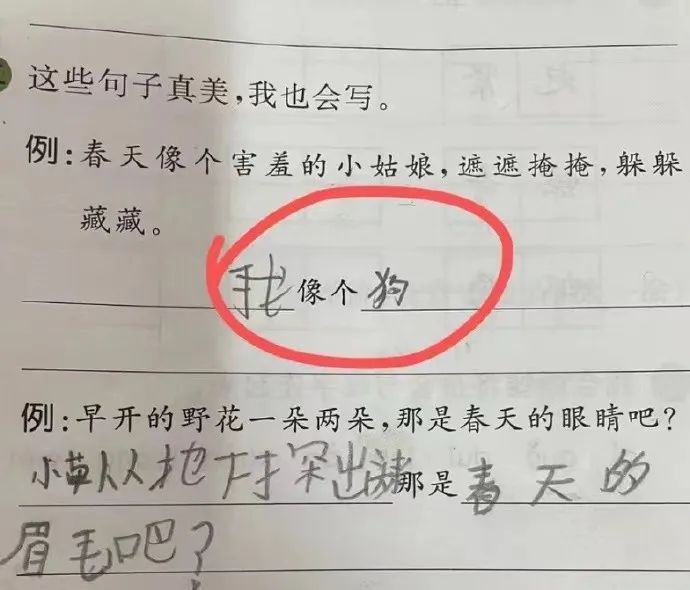 这些句子真美,我也会写。
例:春天像个害羞的小姑娘,遮遮掩掩,躲躲
藏藏。
我像个狗
例:早开的野花一朵两朵,那是春天的眼睛吧?
小草从地探出头那是春天的
眉毛吧?